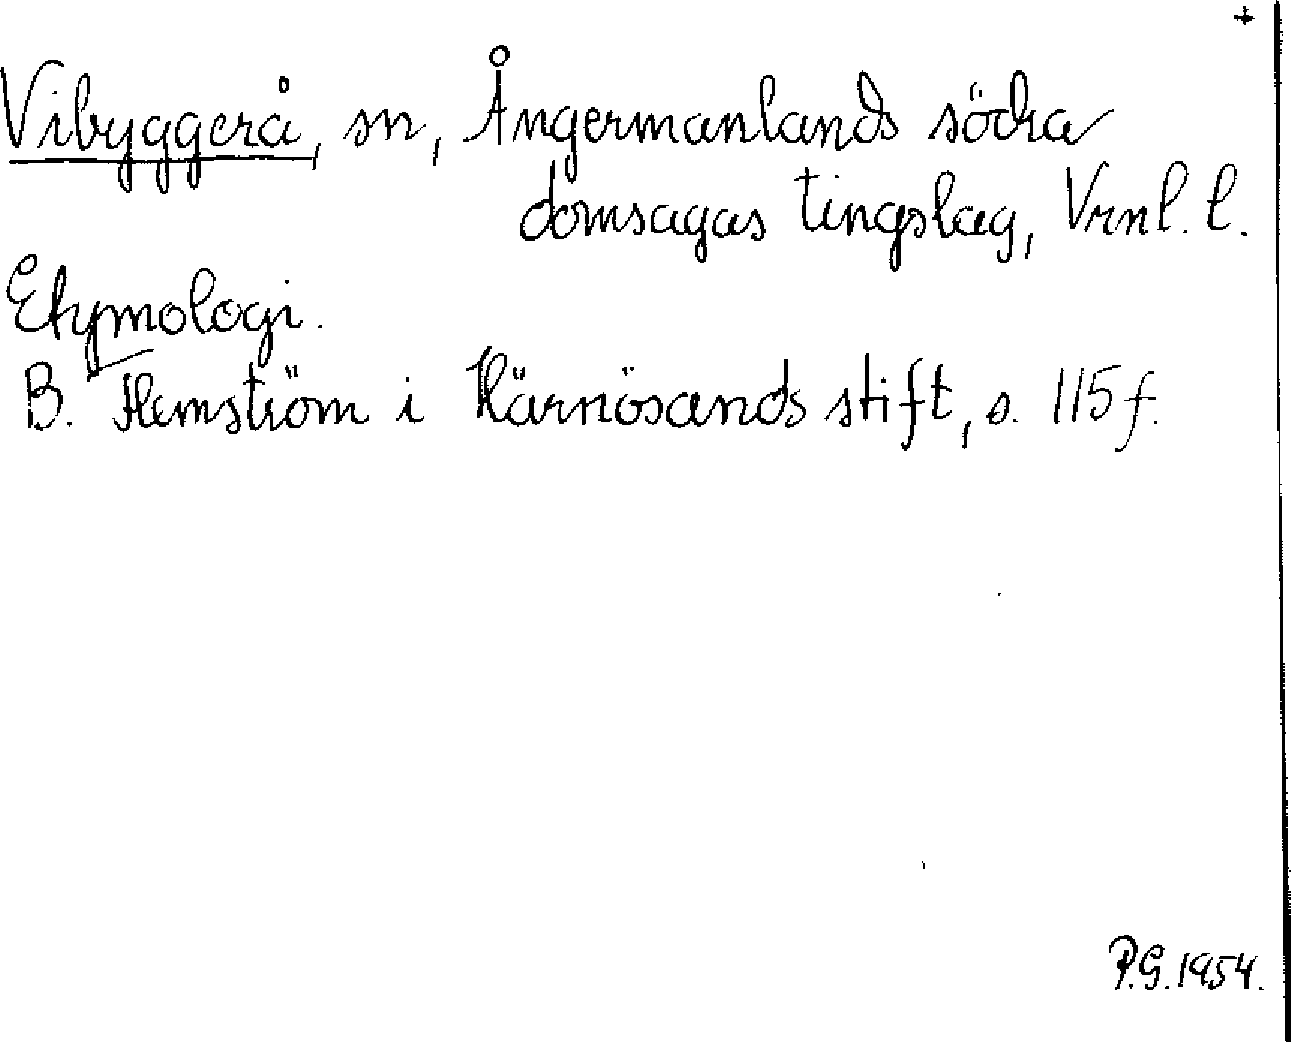 +
Vibyggerå, sn, Ångermanlands södra
domsagas tingslag, Vrnl. l.
Etymologi.
B. Hemström i Härnösands stift, s. 115 f.
P.G. 1954.